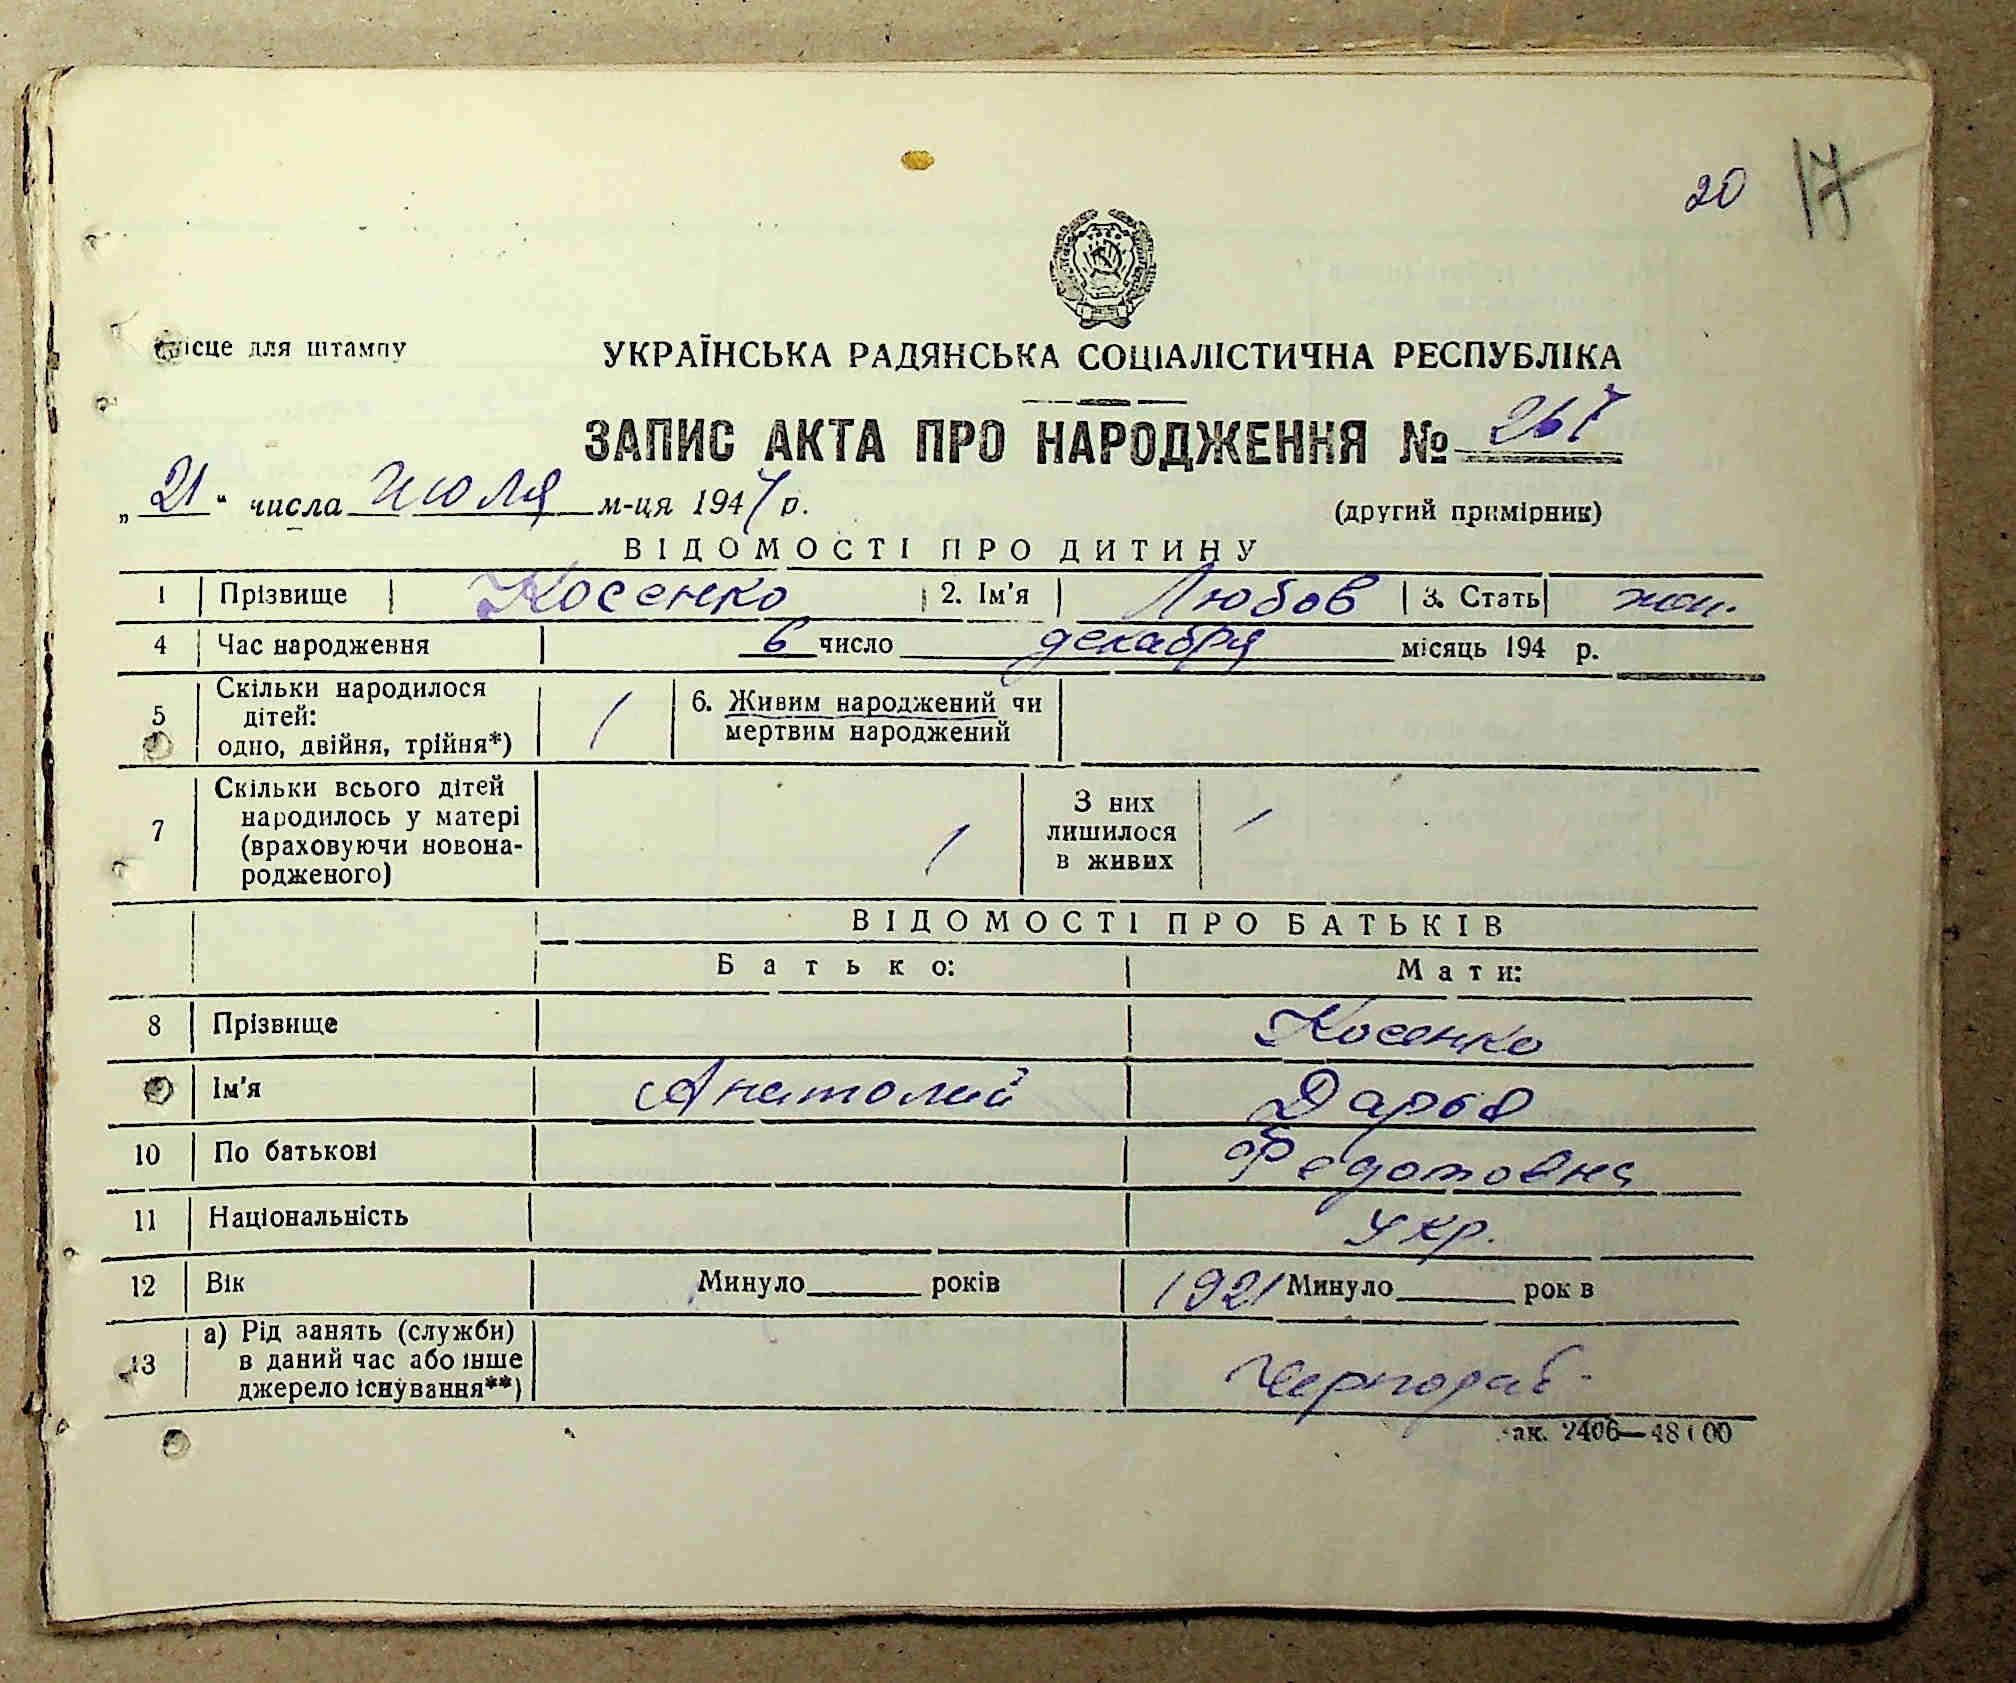 20 17
місце для штампу
УКРАЇНСЬКА РАДЯНСЬКА СОЦІАЛІСТИЧНА РЕСПУБЛІКА
ЗАПИС АКТА ПРО НАРОДЖЕННЯ № 267
„21“ числа июля м-ця 1947 р.
(другий примірник)
ВІДОМОСТІ ПРО ДИТИНУ
1 Прізвище Косенко 2. Ім'я Любов 3. Стать жен.
4 Час народження 6 число декабря місяць 194 р.
5 Скільки народилося дітей: одно, двійня, трійня*) 1 6. Живим народжений чи мертвим народжений
7 Скільки всього дітей народилось у матері (враховуючи новонародженого) 1 З них лишилося в живих 1
ВІДОМОСТІ ПРО БАТЬКІВ
Батько: Мати:
8 Прізвище Косенко
Ім'я Анатолий Дарья
10 По батькові Федотовна
11 Національність Укр.
12 Вік Минуло років 1921 Минуло рок в
13 а) Рід занять (служби) в даний час або інше джерело існування**) Чернораб.
зак. 2406—48100